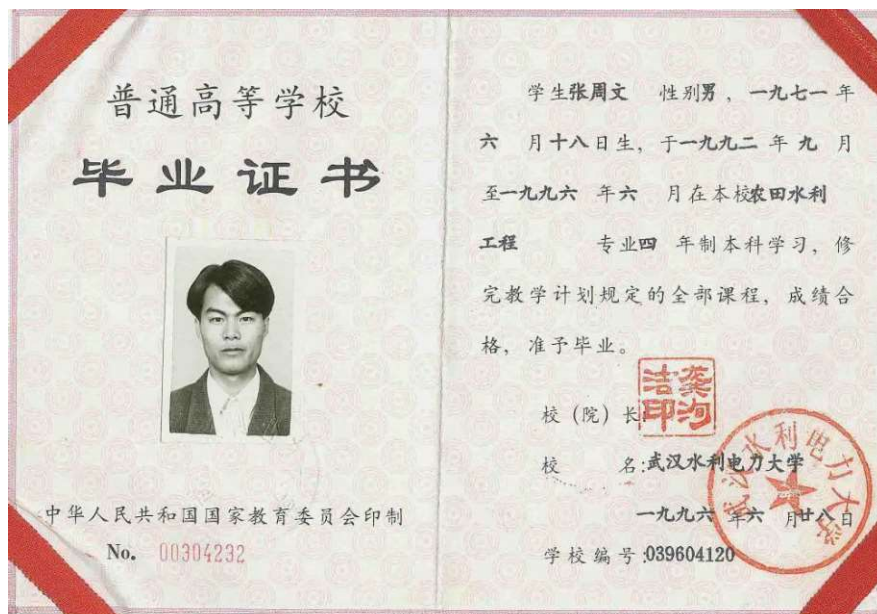 普通高等学校
毕业证书
中华人民共和国国家教育委员会印制
No. 00304232
学生张周文 性别男，一九七一年
六 月十八日生，于一九九二年九月
至一九九六年六 月在本校农田水利
工程 专业四 年制本科学习，修
完教学计划规定的全部课程，成绩合
格，准予毕业。
校（院）长
龚洵洁印
校 名:武汉水利电力大学
武汉水利电力大学
一九九六年六 月廿八日
学校编号:039604120